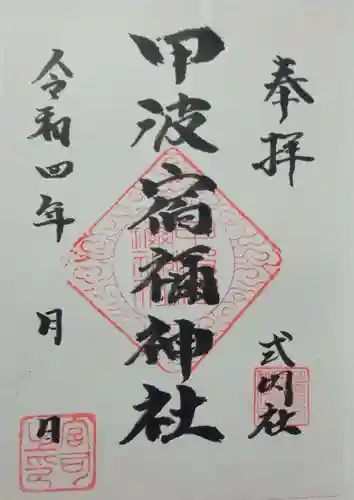 奉拝
式内社
甲波宿禰神社
令和四年 月 日